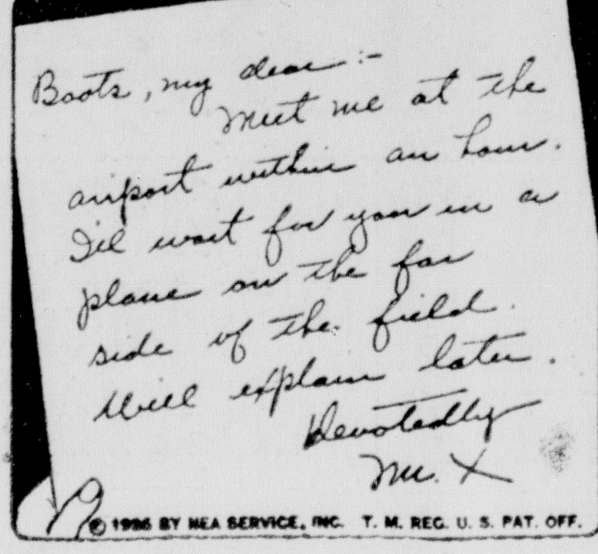 Boots, my dear :-
Meet me at the
airport within an hour.
I'll wait for you in a
plane on the far
side of the field.
Will explain later.
Devotedly
Mr. X
© 1936 BY NEA SERVICE, INC. T. M. REG. U. S. PAT. OFF.